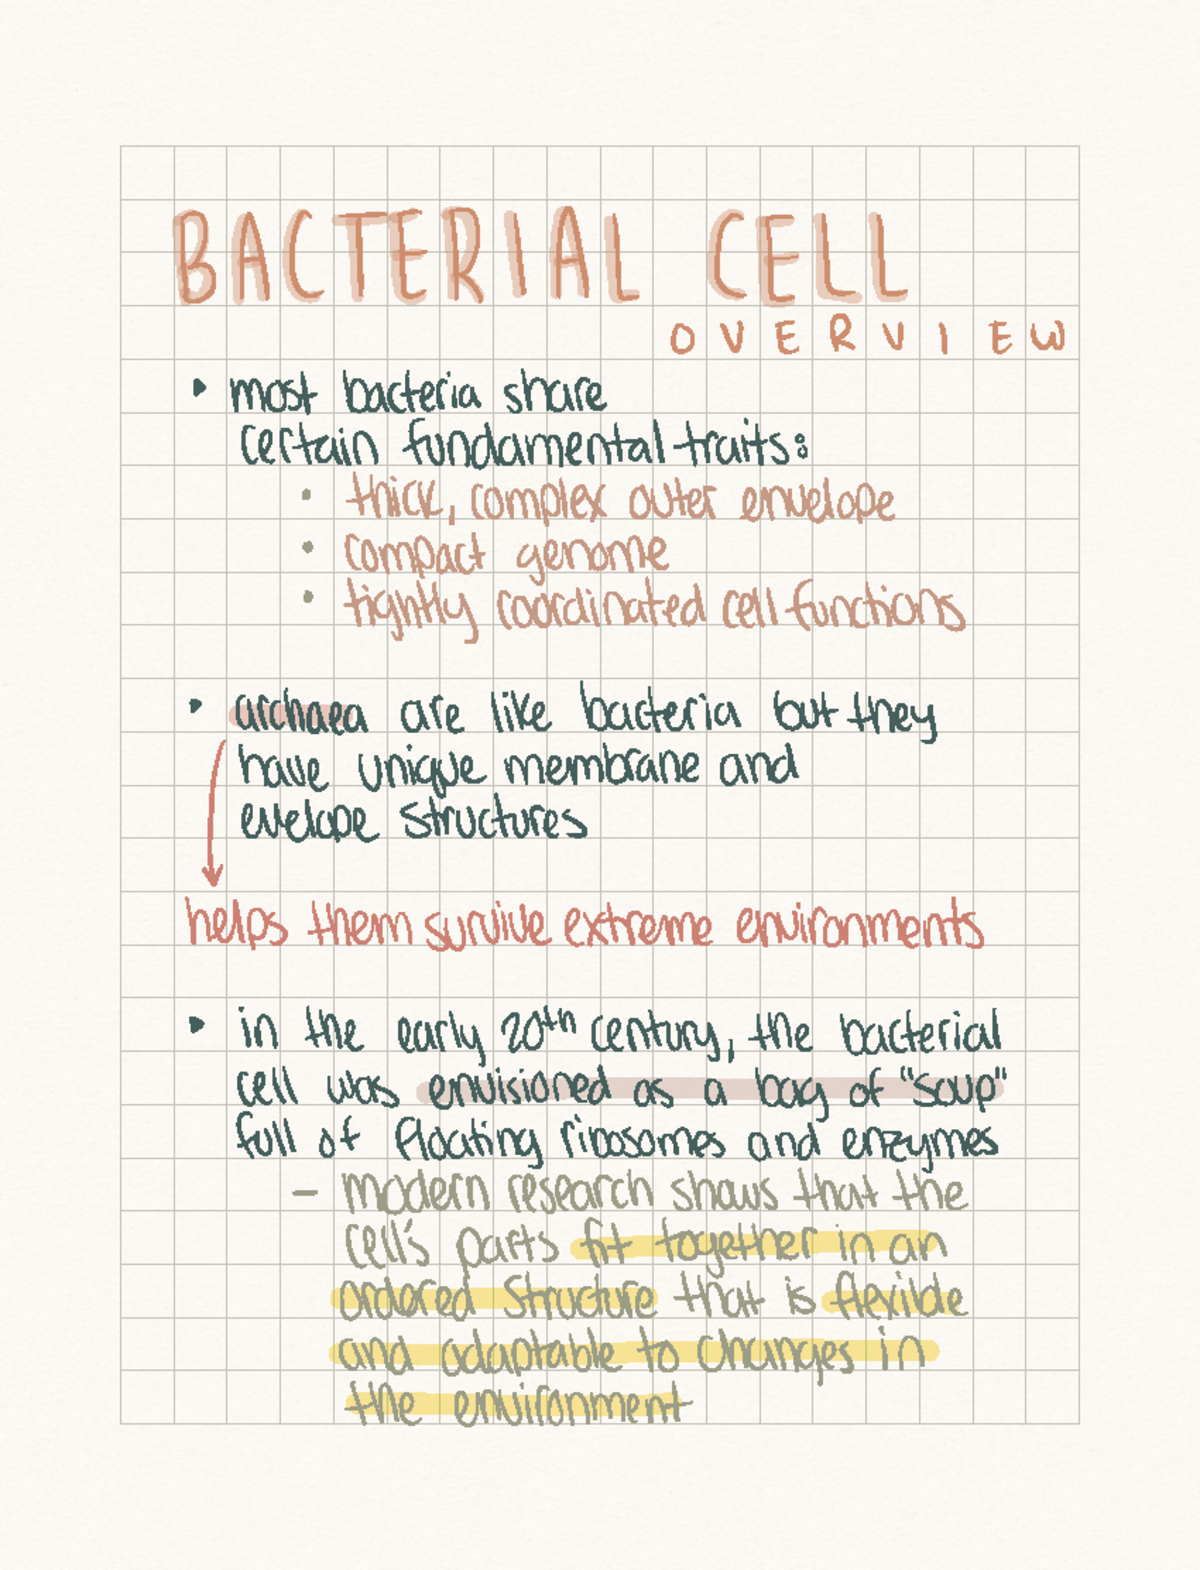 BACTERIAL CELL
OVERVIEW
• most bacteria share
certain fundamental traits:
• thick, complex outer envelope
• compact genome
• tightly coordinated cell functions
• archaea are like bacteria but they
have unique membrane and
evelope structures
helps them survive extreme environments
• in the early 20th century, the bacterial
cell was envisioned as a bag of "soup"
full of floating ribosomes and enzymes
– modern research shows that the
cell's parts fit together in an
ordered structure that is flexible
and adaptable to changes in
the environment